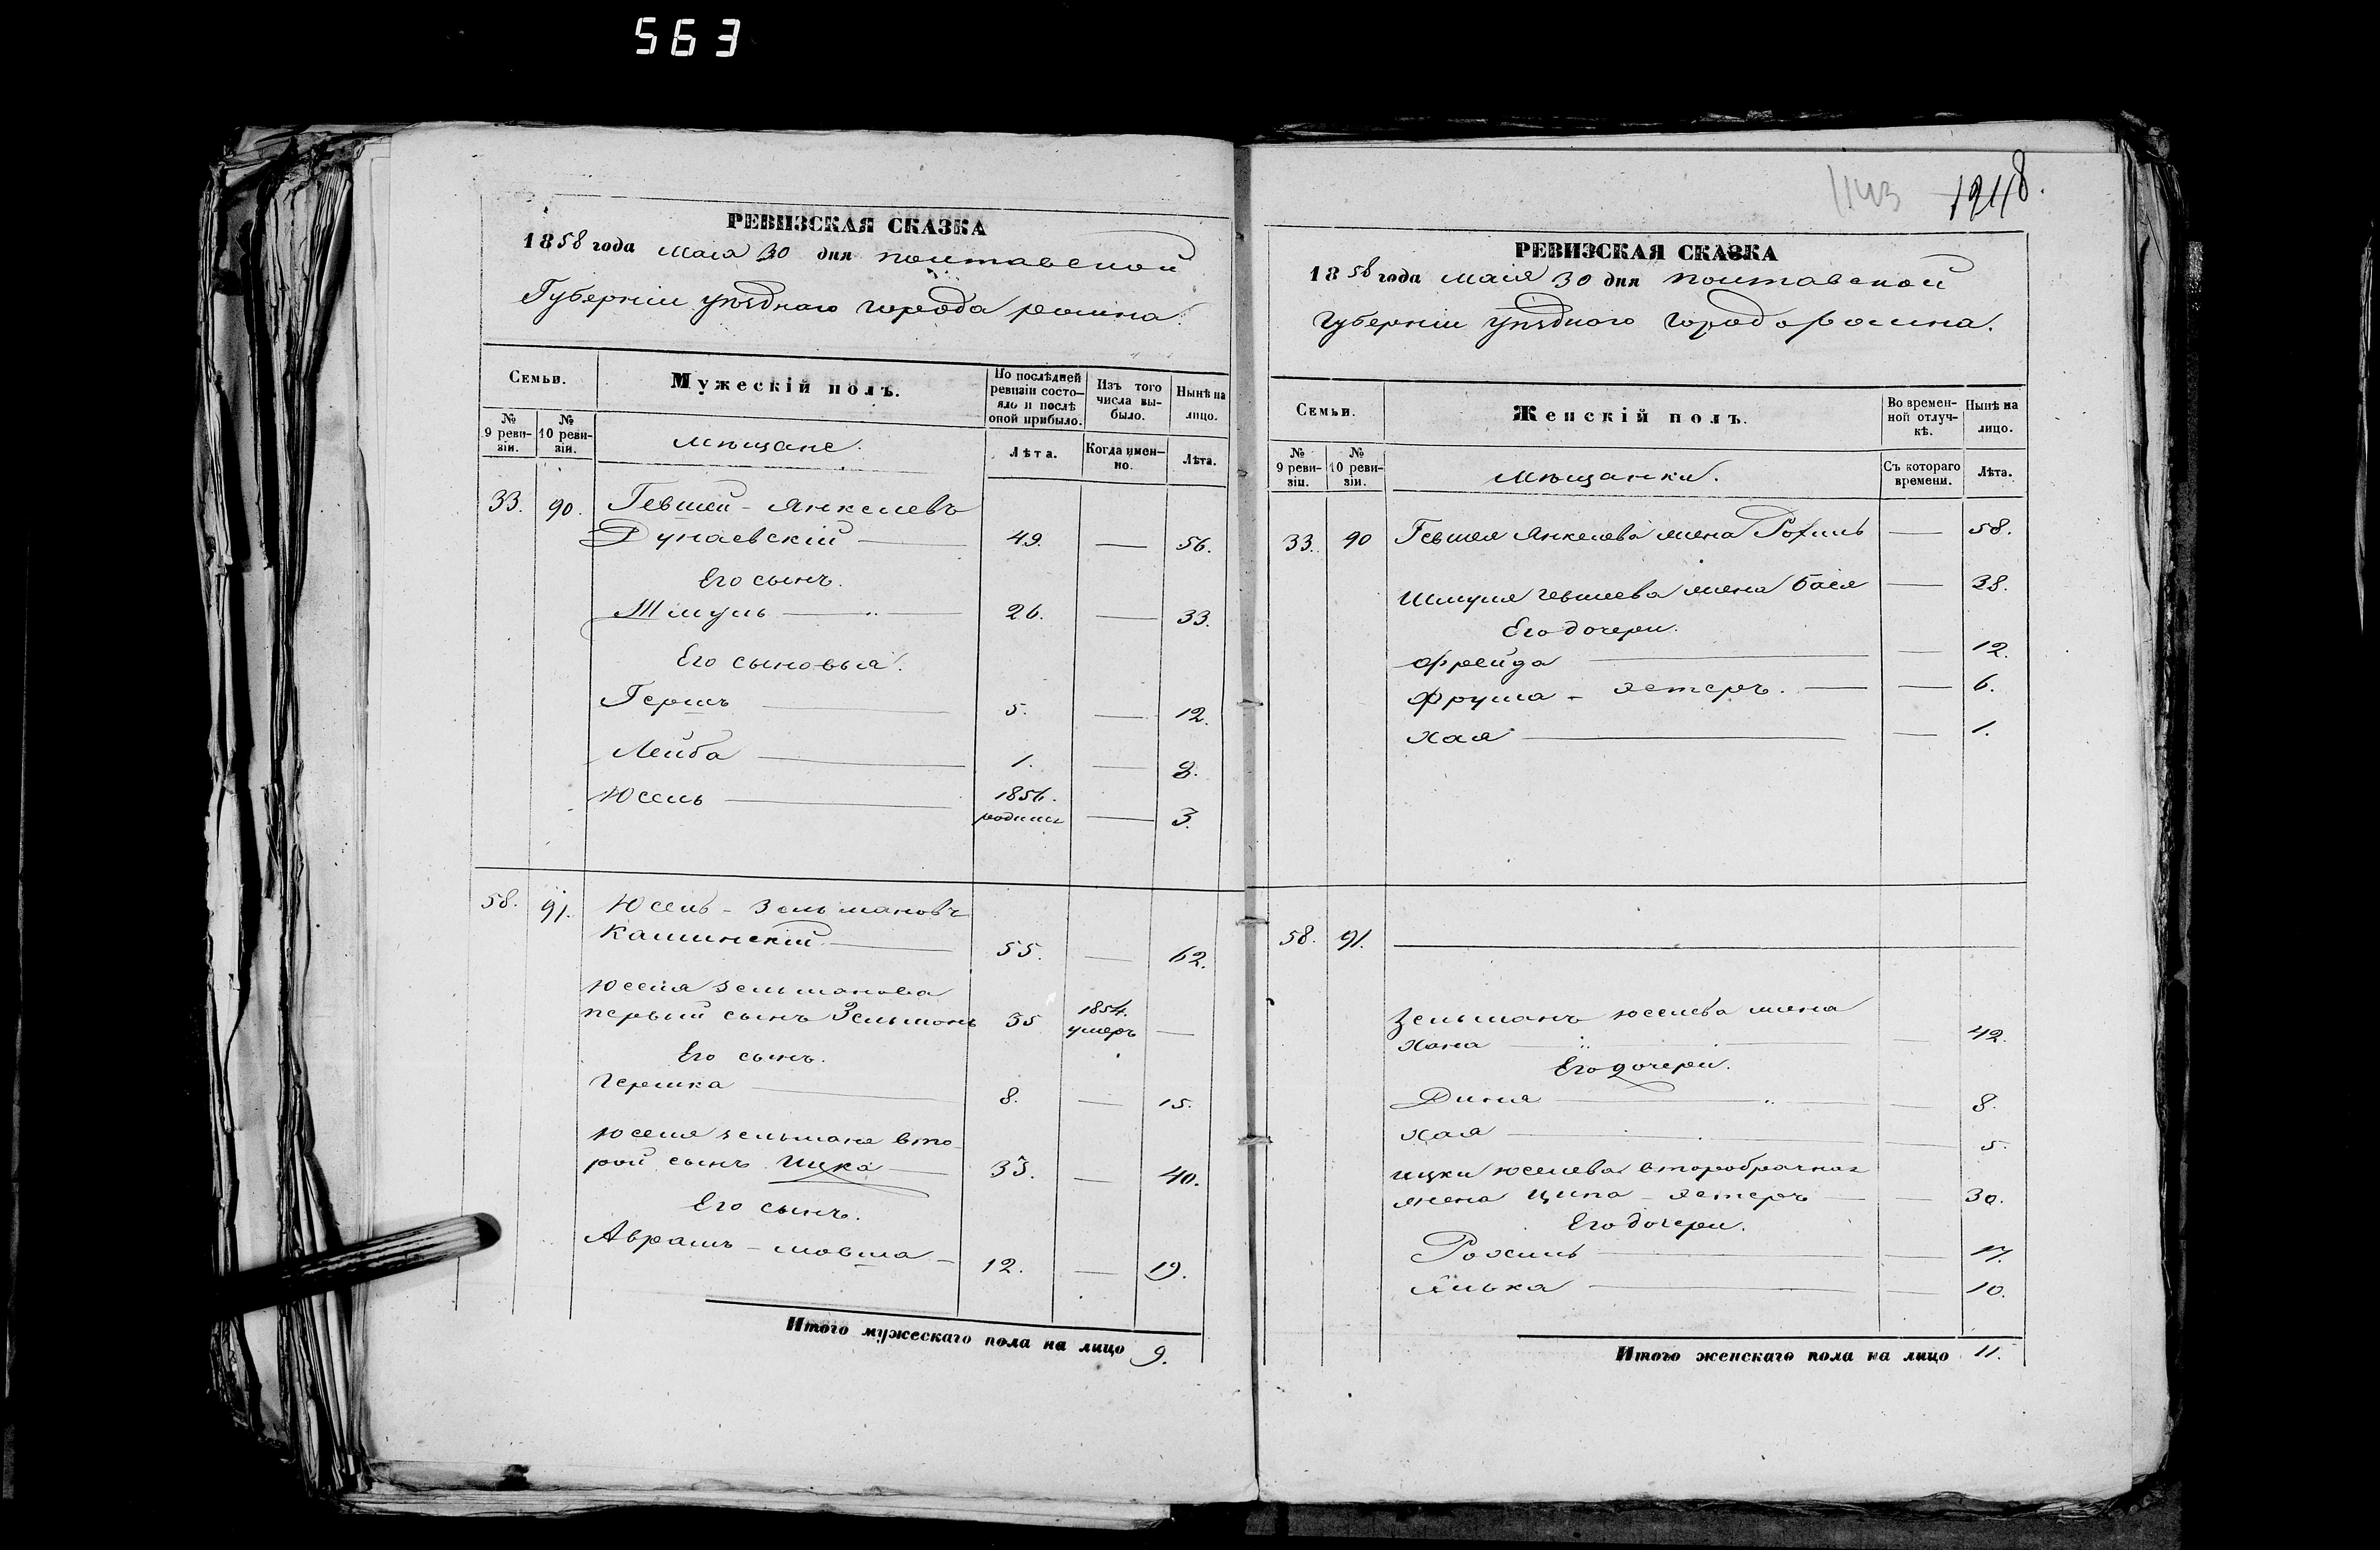 563
РЕВИЗСКАЯ СКАЗКА
1858 года Маія 30 дня Полтавской
Губерніи уѣзднаго города ромна.
Семьи.
Мужескій полъ.
По послѣдней ревизіи состо-
яло и послѣ оной прибыло.
Изъ того числа вы-
было.
Нынѣ на лицо.
№ 9 реви-
зіи.
№ 10 реви-
зіи.
мѣщане.
Лѣта.
Когда имен-
но.
Лѣта.
33. 90. Гевшей - Янкелевъ
Дунаевскій — 49. — 56.
Его сынъ.
Шмуль — 26. — 33.
Его сыновья.
Гершъ — 5. — 12.
Лейба — 1. — 8.
Юсель — 1856. родился — 3.
58. 91. Юсель - Зельмановъ
Кашинскій — 55. — 62.
Юселя Зельманова
первый сынъ Зельманъ 35 1854. умеръ —
Его сынъ.
Гершка — 8. — 15.
Юселя Зельмана вто
рой сынъ Ицка — 33. — 40.
Его сынъ.
Аврамъ - мовша - 12. — 19.
Итого мужескаго пола на лицо 9.
1143
1218.
РЕВИЗСКАЯ СКАЗКА
1858 года маія 30 дня Полтавской
губерніи уѣзднаго города ромна.
Семьи.
Женскій полъ.
Во времен-
ной отлуч-
кѣ.
Нынѣ на лицо.
№ 9 реви-
зіи.
№ 10 реви-
зіи.
мѣщанки.
Съ котораго времени.
Лѣта.
33. 90 Гевшея Янкелева жена Рохиль — 58.
Шмуля Гевшеева жена Бася — 38.
Его дочери.
Фрейда — — 12.
Фрума - эстеръ. — — 6.
Хая — — 1.
58. 91. —
Зельмана Юселева жена
Хана — — 42.
Его дочери.
Диня — — 8.
Хая — — 5.
Ицки Юселева второбрачная
жена Ципа - эстеръ — — 30.
Его дочери.
Рохиль — — 17.
Элька — — 10.
Итого женскаго пола на лицо 11.